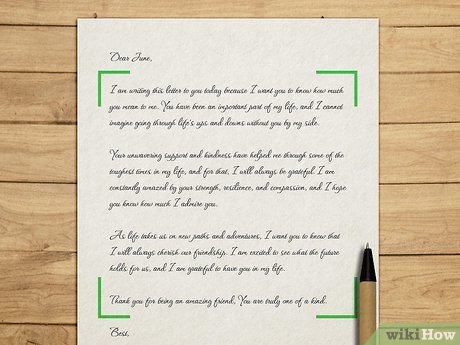 Dear June,
I am writing this letter to you today because I want you to know how much
you mean to me. You have been an important part of my life, and I cannot
imagine going through life's ups and downs without you by my side.
Your unwavering support and kindness have helped me through some of the
toughest times in my life, and for that, I will always be grateful. I am
constantly amazed by your strength, resilience, and compassion, and I hope
you know how much I admire you.
As life takes us on new paths and adventures, I want you to know that
I will always cherish our friendship. I am excited to see what the future
holds for us, and I am grateful to have you in my life.
Thank you for being an amazing friend, You are truly one of a kind.
Best,
wikiHow